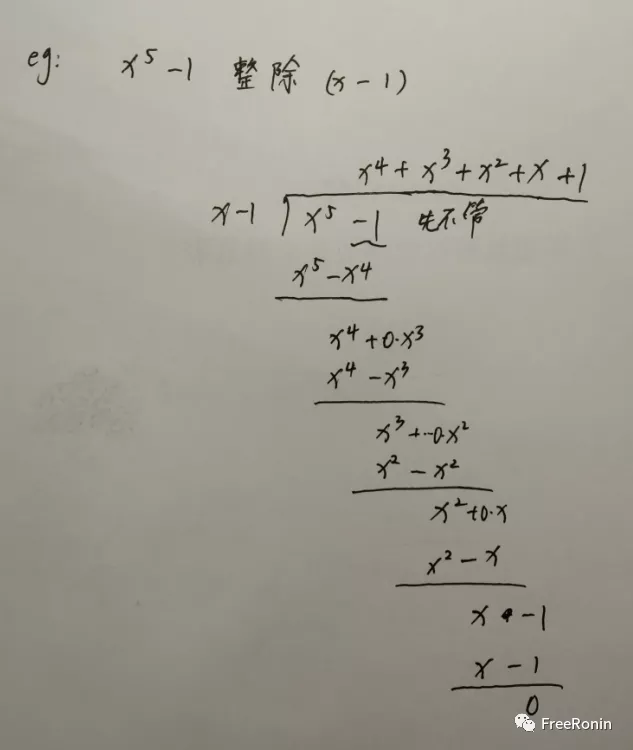 eg: x⁵ -1 整除 (x-1)
x⁴ + x³ + x² + x + 1
x-1 ) x⁵ -1 先不管
x⁵ - x⁴
x⁴ + 0·x³
x⁴ - x³
x³ + 0·x²
x² - x²
x² + 0·x
x² - x
x - 1
x - 1
0
FreeRonin